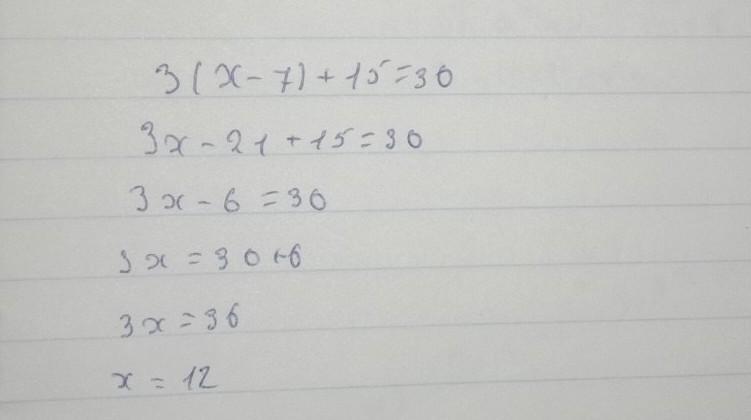 3(x-7)+15=30
3x-21+15=30
3x-6=30
3x=30+6
3x=36
x=12